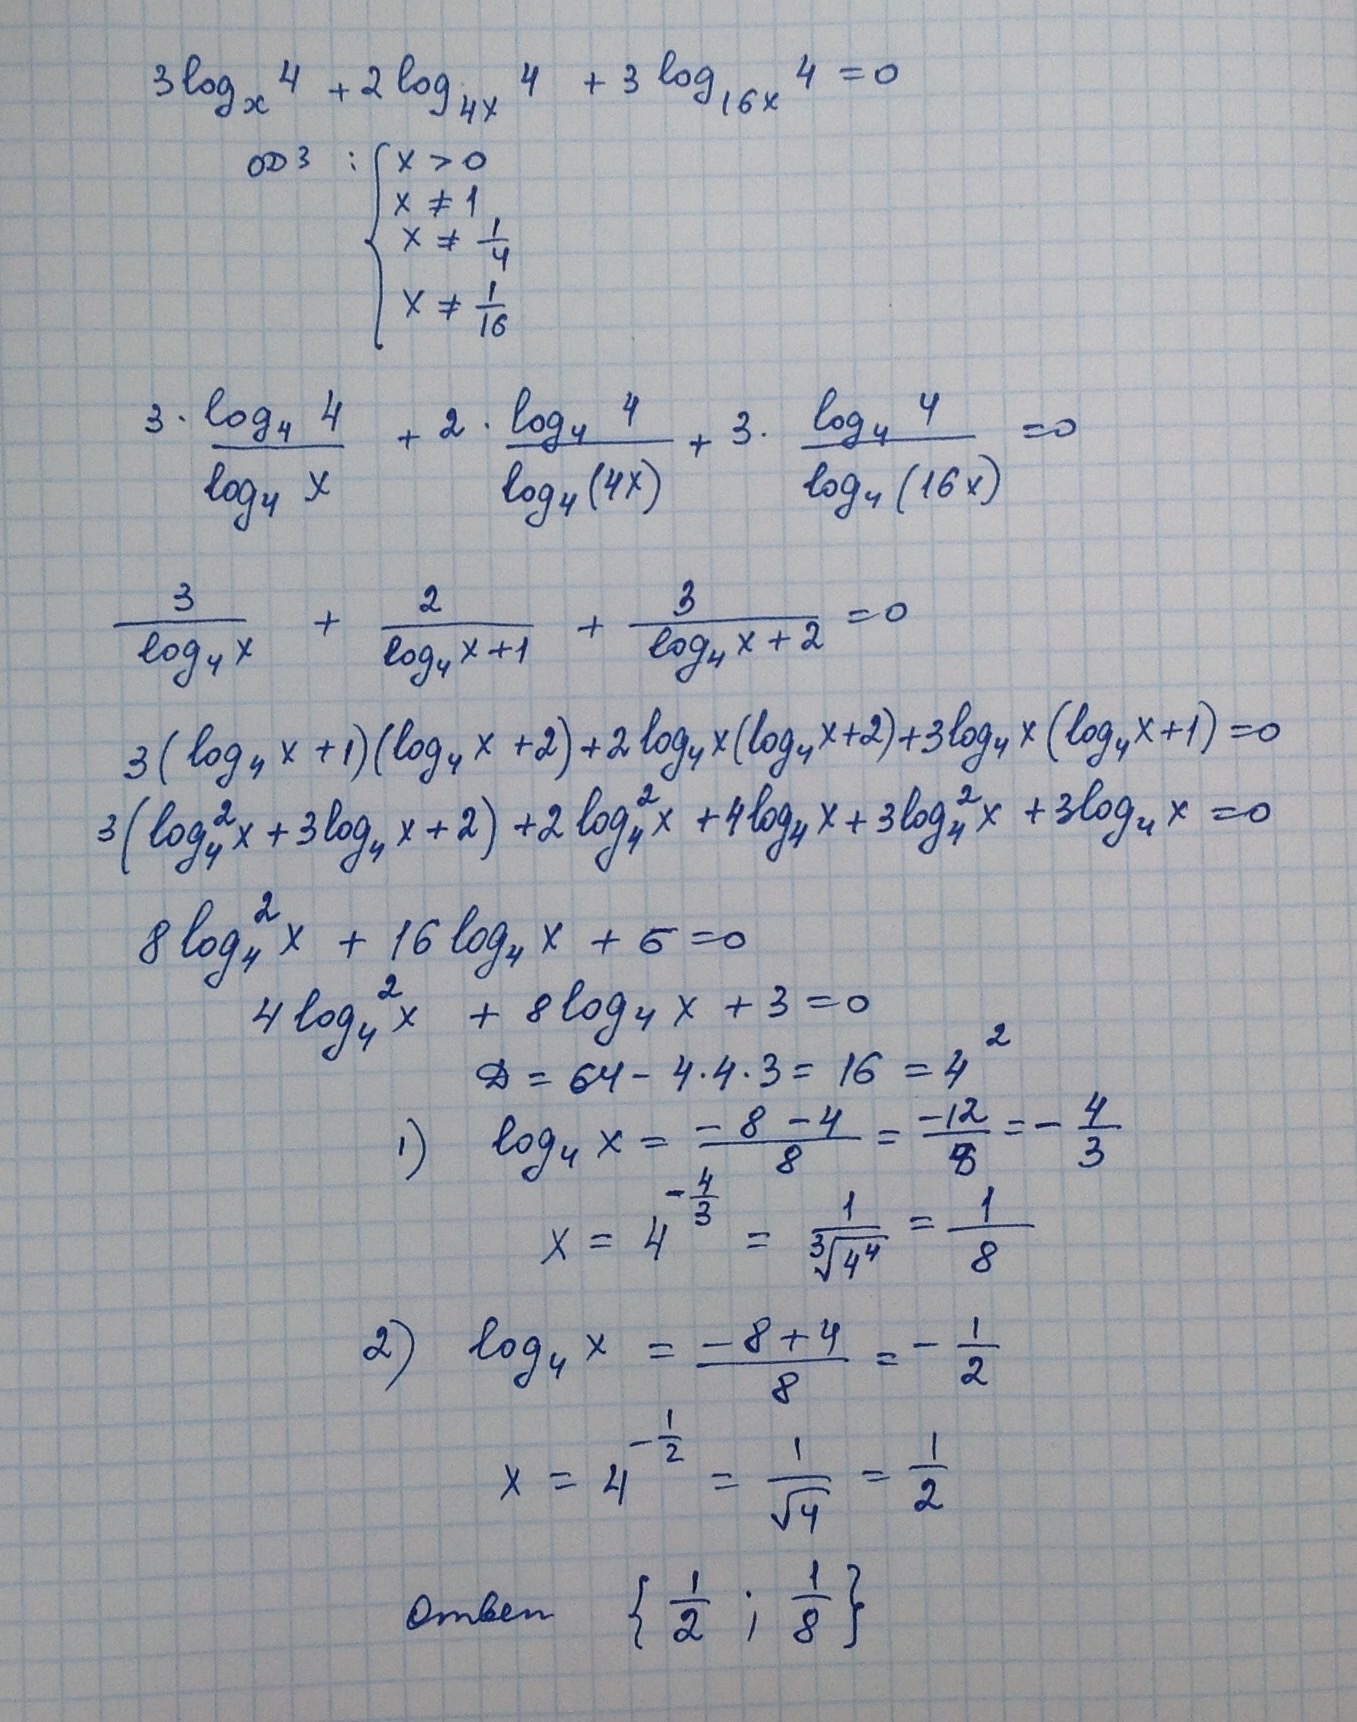 3log_x 4 + 2log_{4x} 4 + 3log_{16x} 4 = 0
ОДЗ : { x > 0
x ≠ 1
x ≠ 1/4
x ≠ 1/16
3 · (log₄ 4)/(log₄ x) + 2 · (log₄ 4)/(log₄(4x)) + 3 · (log₄ 4)/(log₄(16x)) = 0
3/(log₄x) + 2/(log₄x+1) + 3/(log₄x+2) = 0
3(log₄x+1)(log₄x+2)+2log₄x(log₄x+2)+3log₄x(log₄x+1)=0
3(log₄²x+3log₄x+2)+2log₄²x+4log₄x+3log₄²x+3log₄x=0
8log₄²x + 16log₄x + 6 = 0
4log₄²x + 8log₄x + 3 = 0
D = 64 - 4·4·3 = 16 = 4²
1) log₄x = (-8-4)/8 = -12/8 = -4/3
x = 4^(-4/3) = 1/∛(4⁴) = 1/8
2) log₄x = (-8+4)/8 = -1/2
x = 4^(-1/2) = 1/√4 = 1/2
Ответ {1/2 ; 1/8}